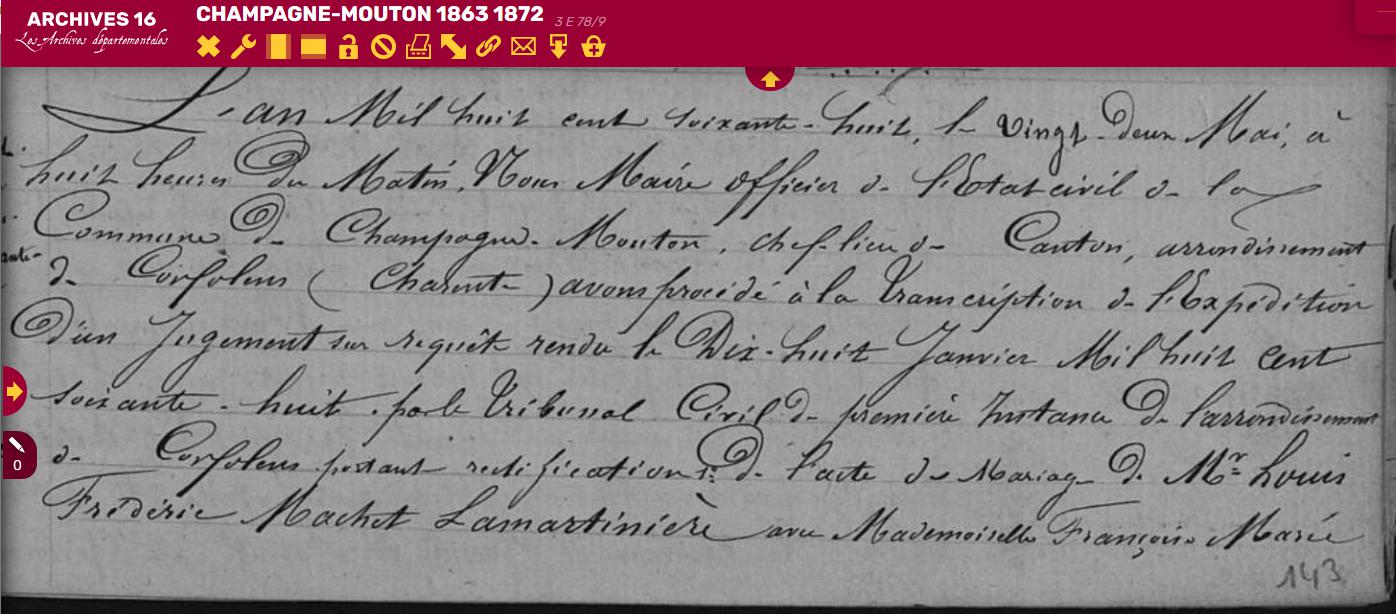 ARCHIVES 16
Les Archives départementales
CHAMPAGNE-MOUTON 1863 1872 3 E 78/9
L'an Mil huit cent soixante-huit, le Vingt-deux Mai, à
huit heures Du Matin, Nous Maire officier de l'Etat civil de la
Commune De Champagne-Mouton, chef-lieu de Canton, arrondissement
de Confolens ( Charente ) avons procédé à la Transcription de l'Expédition
D'un Jugement sur requête rendu le Dix-huit Janvier Mil huit Cent
soixante-huit par le Tribunal Civil de première Instance De l'arrondissement
de Confolens portant rectification : 1° De l'acte de Mariage De Mr Louis
Frédéric Machet Lamartinière avec Mademoiselle Françoise Marie
143
0